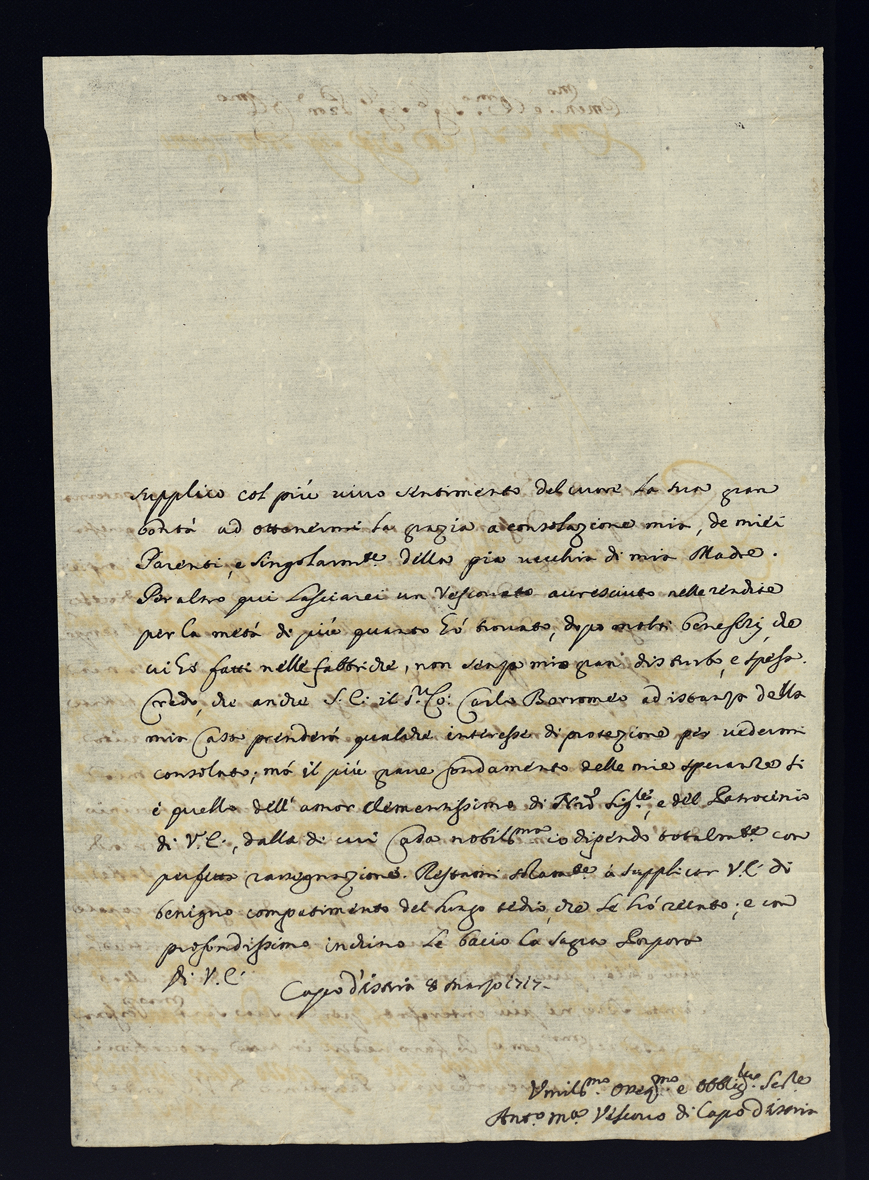 supplico col più vivo sentimento del cuore la sua gran
bontà ad ottenermi la grazia a consolazione mia, de miei
Parenti, e singolarm.te della pia vecchia di mia Madre.
Per altro qui lasciarei un Vescovato accresciuto nelle rendite
per la metà di più quanto l'hó trovato, dopo molti beneficij, che
vi hó fatti nelle fabbriche, non senza mio gran disturbo, e spesa.
Credo, che anche S. E. il S.r Co: Carlo Borromeo ad istanza della
mia Casa prenderá qualche interesse di protezione per vedermi
consolato; má il più grave fondamento delle mie speranze si
é quello dell'amor Clementissimo di Nro Sig.re, e del Patrocinio
di V. E., dalla di cui Casa nobiliss.ma io dipendo totalm.te con
perfetta rassegnazione. Restami solam.te á supplicar V. E. di
benigno compatimento del lungo tedio, che le hó recato; e con
profondissimo inchino le bacio la sagra Porpora
Di V. E.
Capo d'istria 8 Marzo 1717.
Umiliss.mo Oseq.mo e Obblig.mo Ser.re
Ant.o M.a Vescovo di Capo d'istria